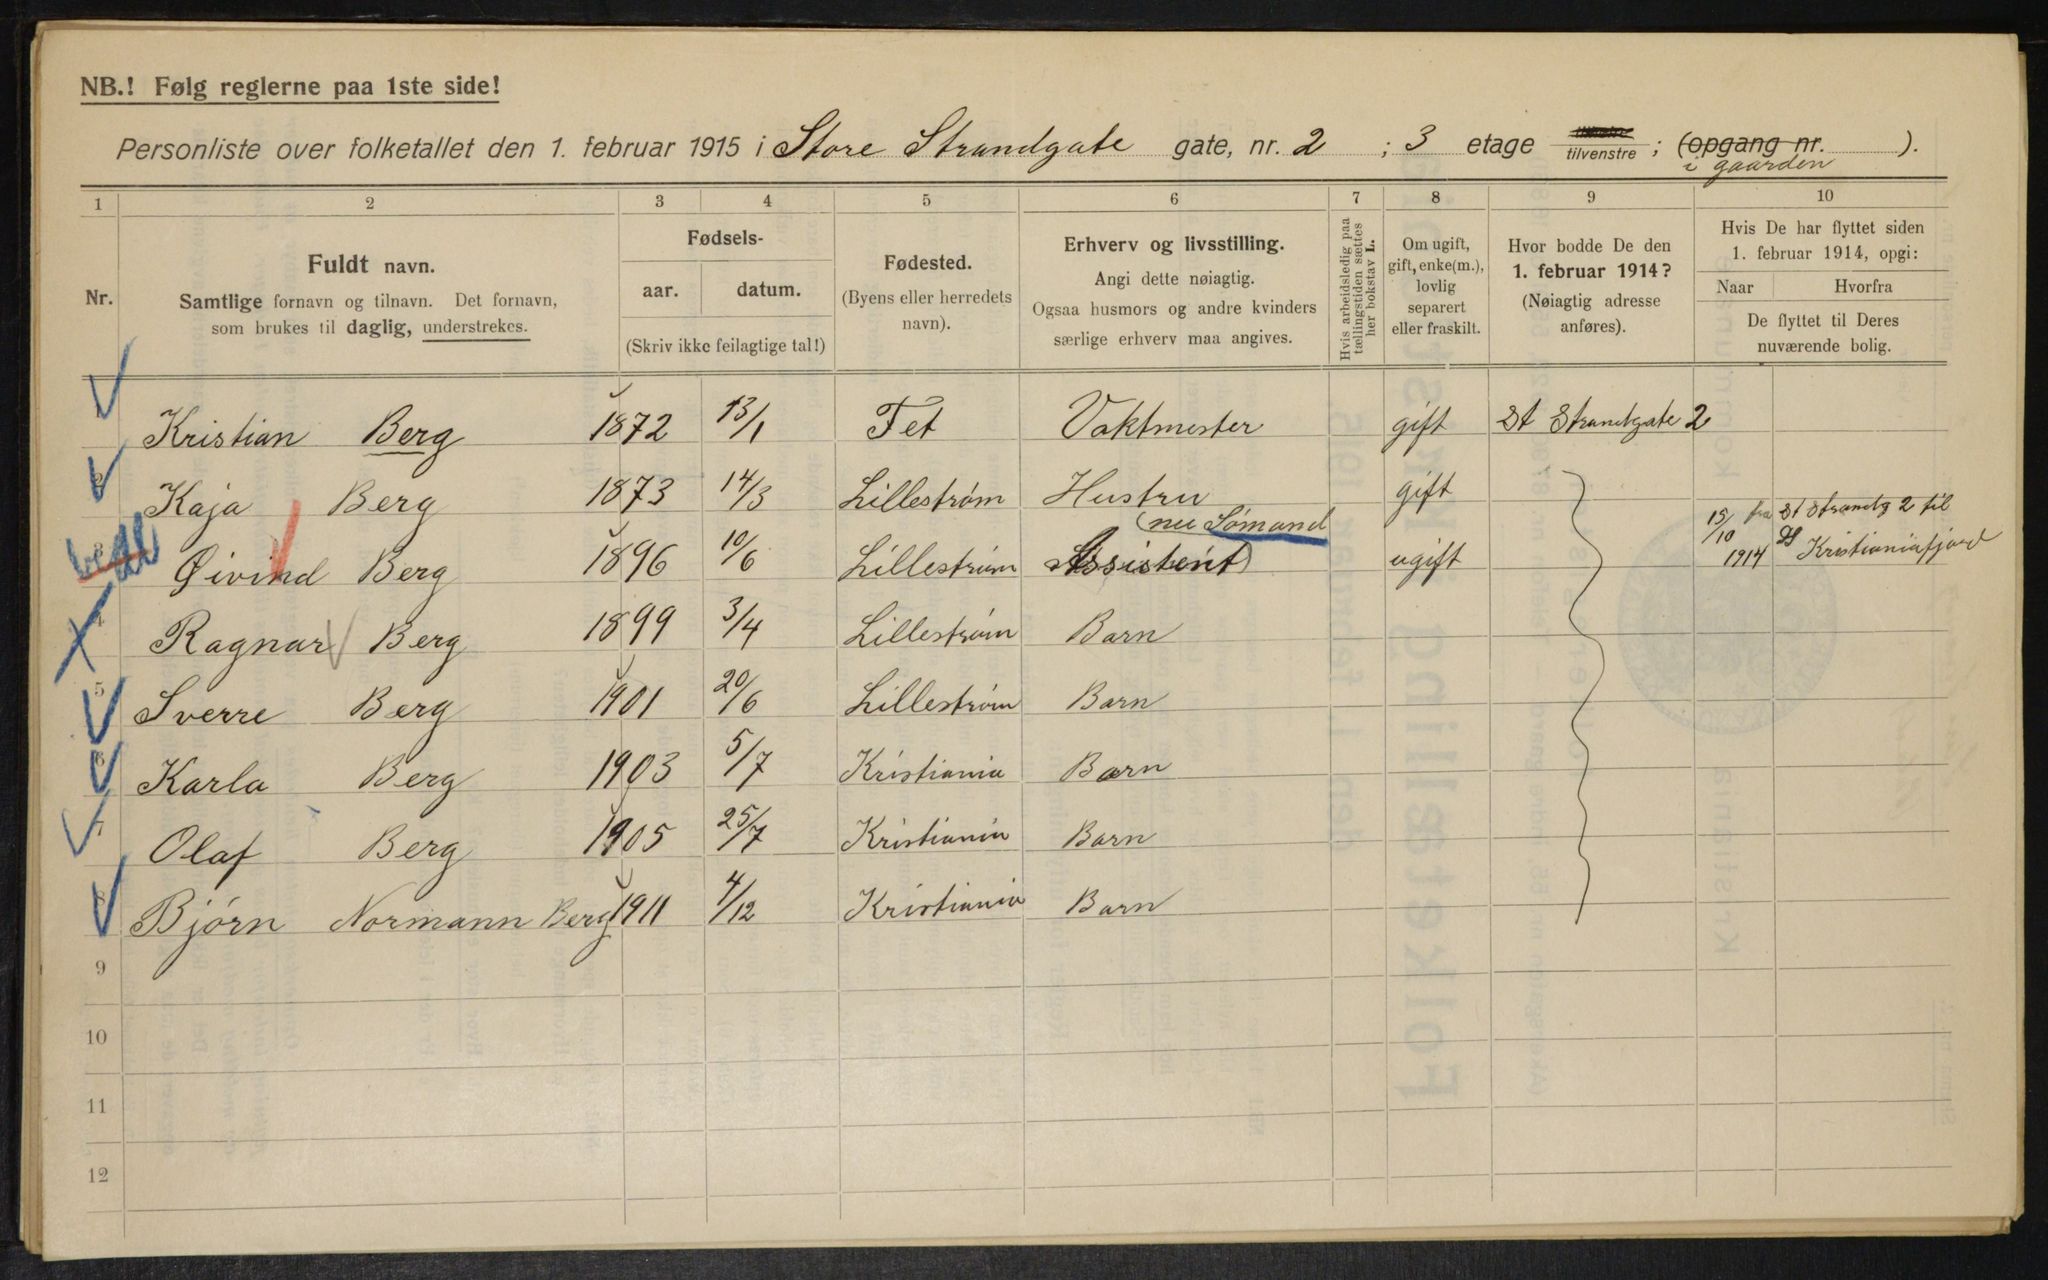 NB.! Følg reglerne paa 1ste side!
Personliste over folketallet den 1. februar 1915 i Store Strandgate gate, nr. 2 ; 3 etage tilvenstre ; (opgang nr. ).
i gaarden
1 2 3 4 5 6 7 8 9 10
Nr.
Fuldt navn.
Samtlige fornavn og tilnavn. Det fornavn,
som brukes til daglig, understrekes.
Fødsels-
aar. datum.
(Skriv ikke feilagtige tal!)
Fødested.
(Byens eller herredets
navn).
Erhverv og livsstilling.
Angi dette nøiagtig.
Ogsaa husmors og andre kvinders
særlige erhverv maa angives.
Hvis arbeidsledig paa
tællingstiden sættes
her bokstav L.
Om ugift,
gift, enke(m.),
lovlig
separert
eller fraskilt.
Hvor bodde De den
1. februar 1914?
(Nøiagtig adresse
anføres).
Hvis De har flyttet siden
1. februar 1914, opgi:
Naar Hvorfra
De flyttet til Deres
nuværende bolig.
1 Kristian Berg 1872 13/1 Fet Vaktmester gift St Strandgate 2
2 Kaja Berg 1873 14/3 Lillestrøm Hustru gift
3 Øivind Berg 1896 10/6 Lillestrøm (nu Sømand Assistent) ugift 15/10 1914 fra St Strandg 2 til DS Kristianiafjord
4 Ragnar Berg 1899 3/4 Lillestrøm Barn
5 Sverre Berg 1901 20/6 Lillestrøm Barn
6 Karla Berg 1903 5/7 Kristiania Barn
7 Olaf Berg 1905 25/7 Kristiania Barn
8 Bjørn Normann Berg 1911 4/12 Kristiania Barn
9
10
11
12